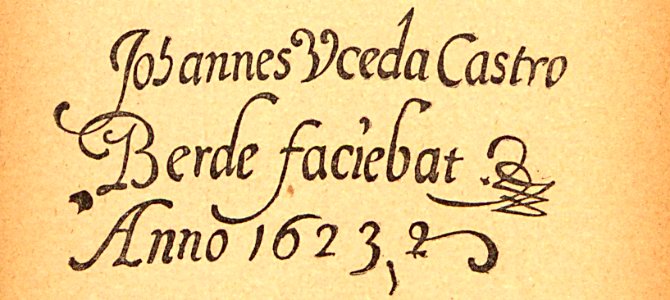 Johannes Vceda Castro
Berde faciebat
Anno 1623,